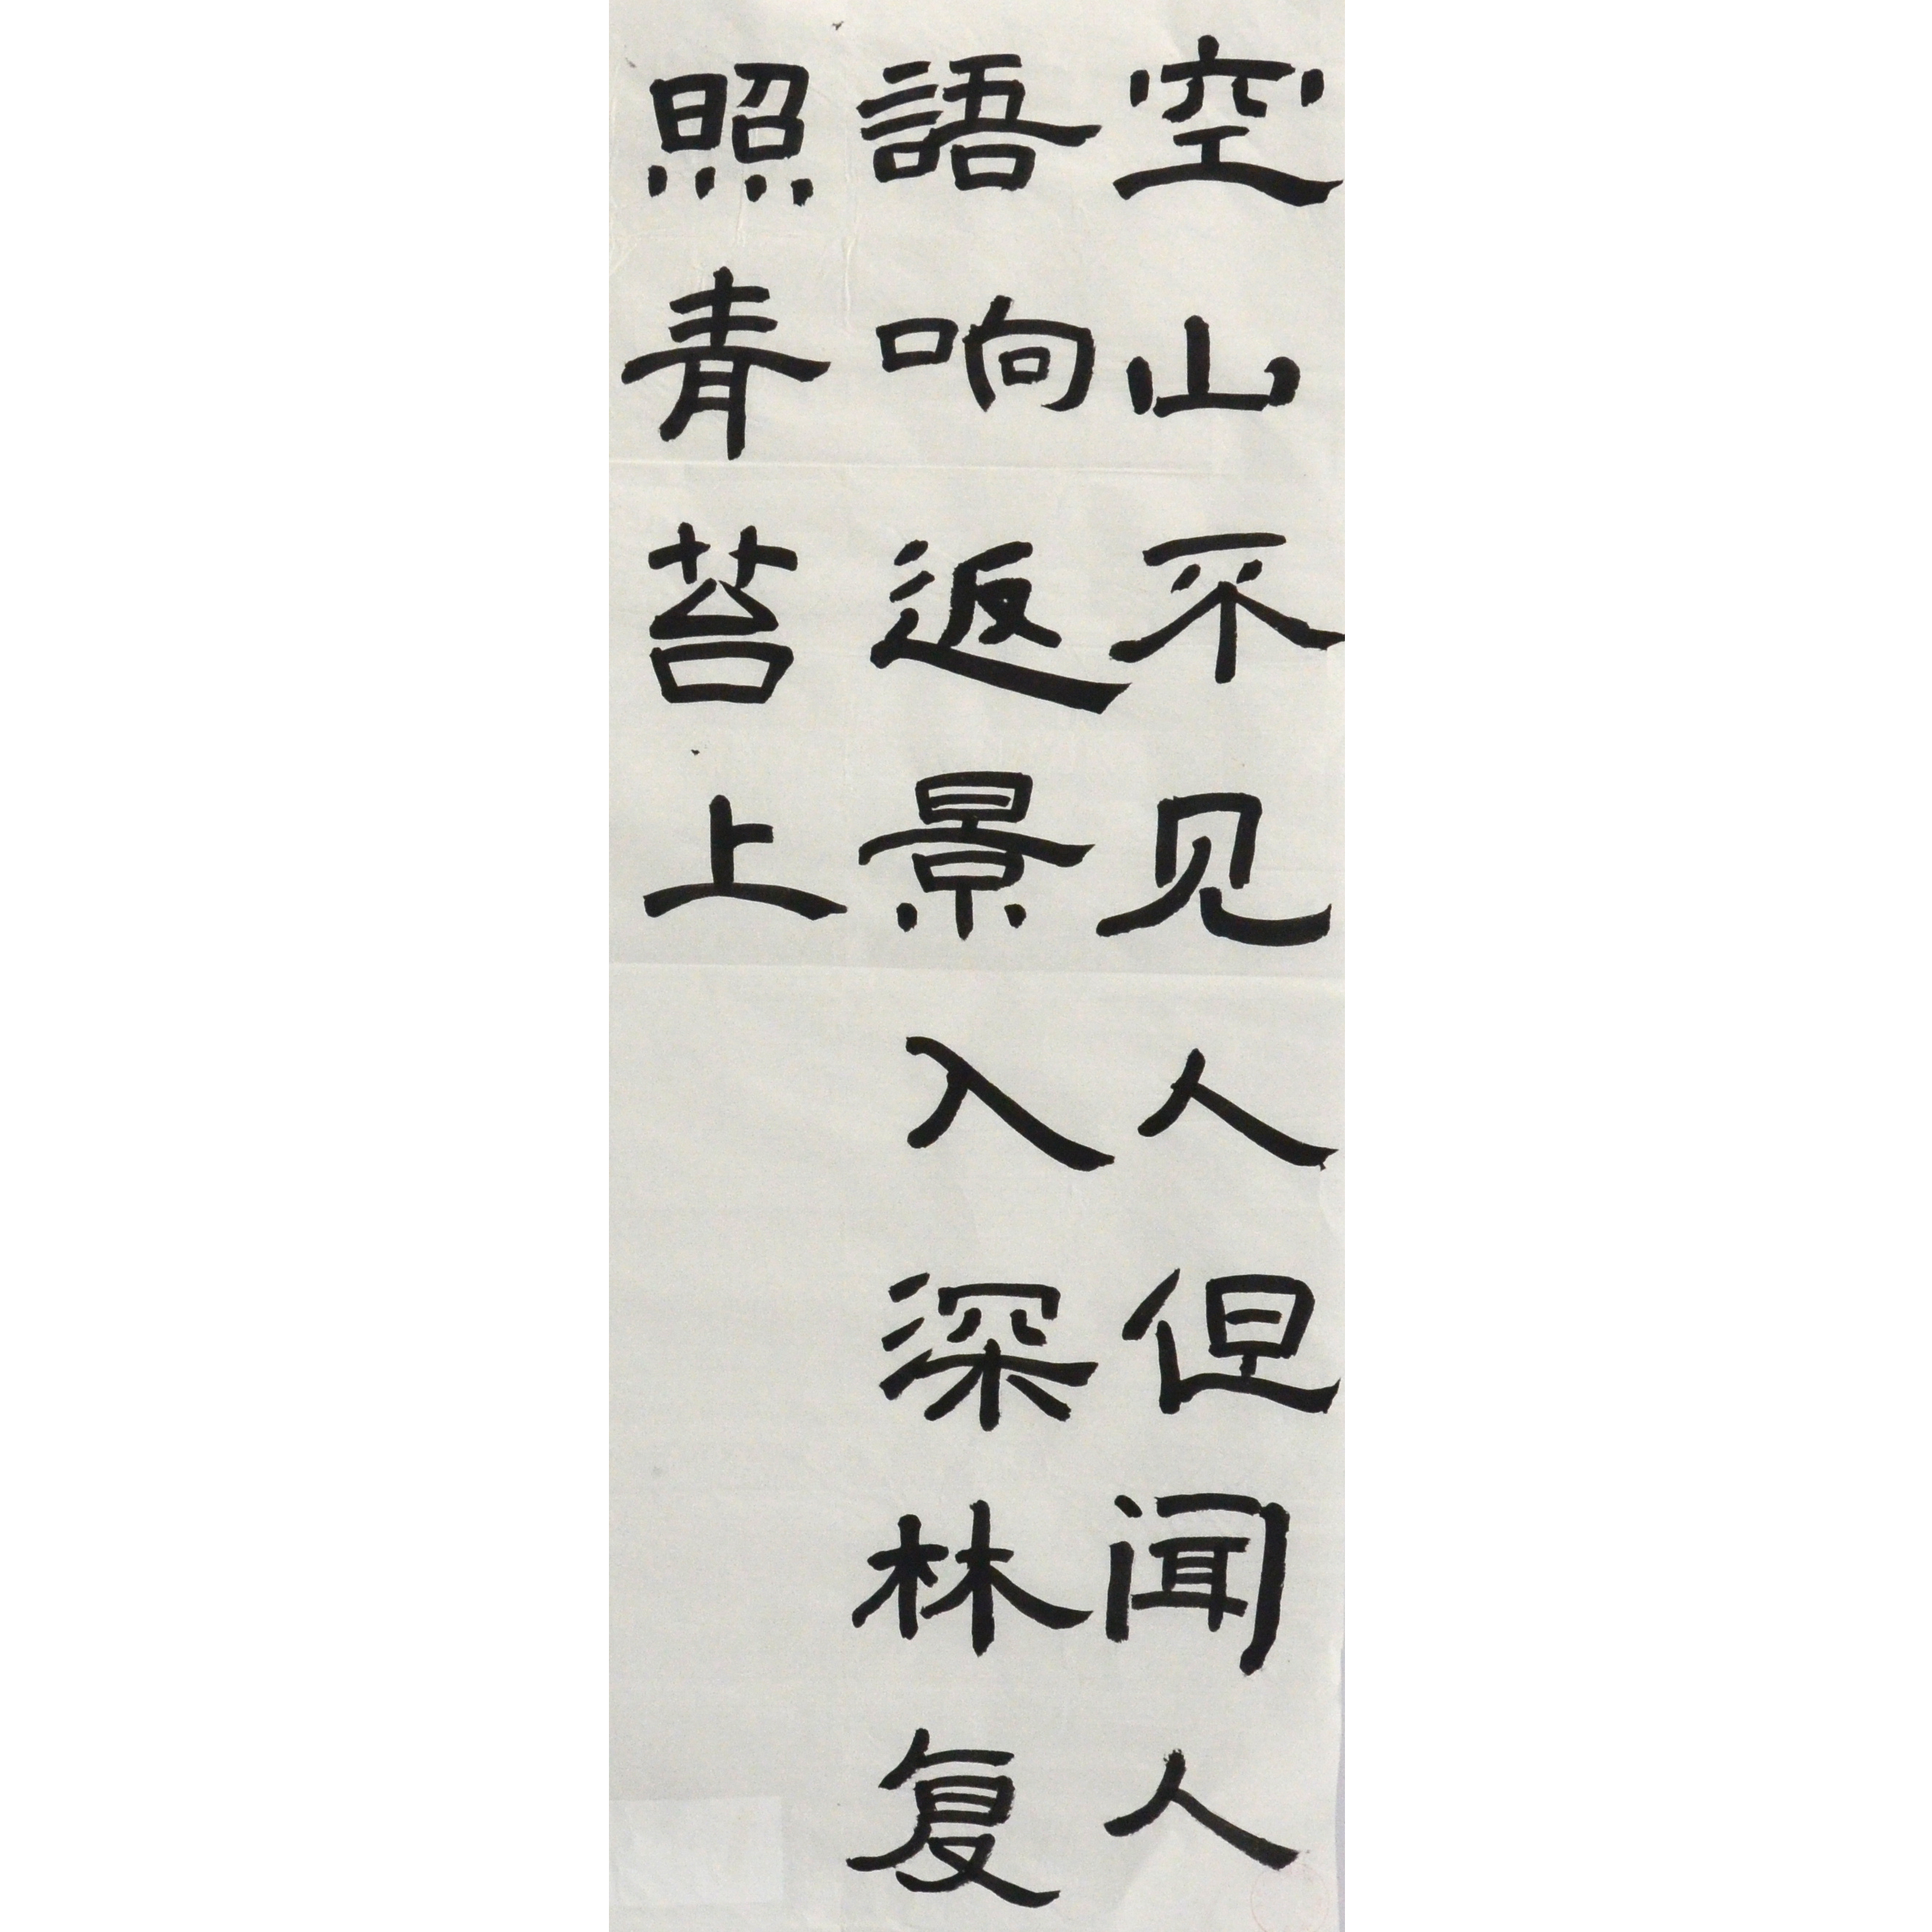 空山不见人但闻人
語响返景入深林复
照青苔上